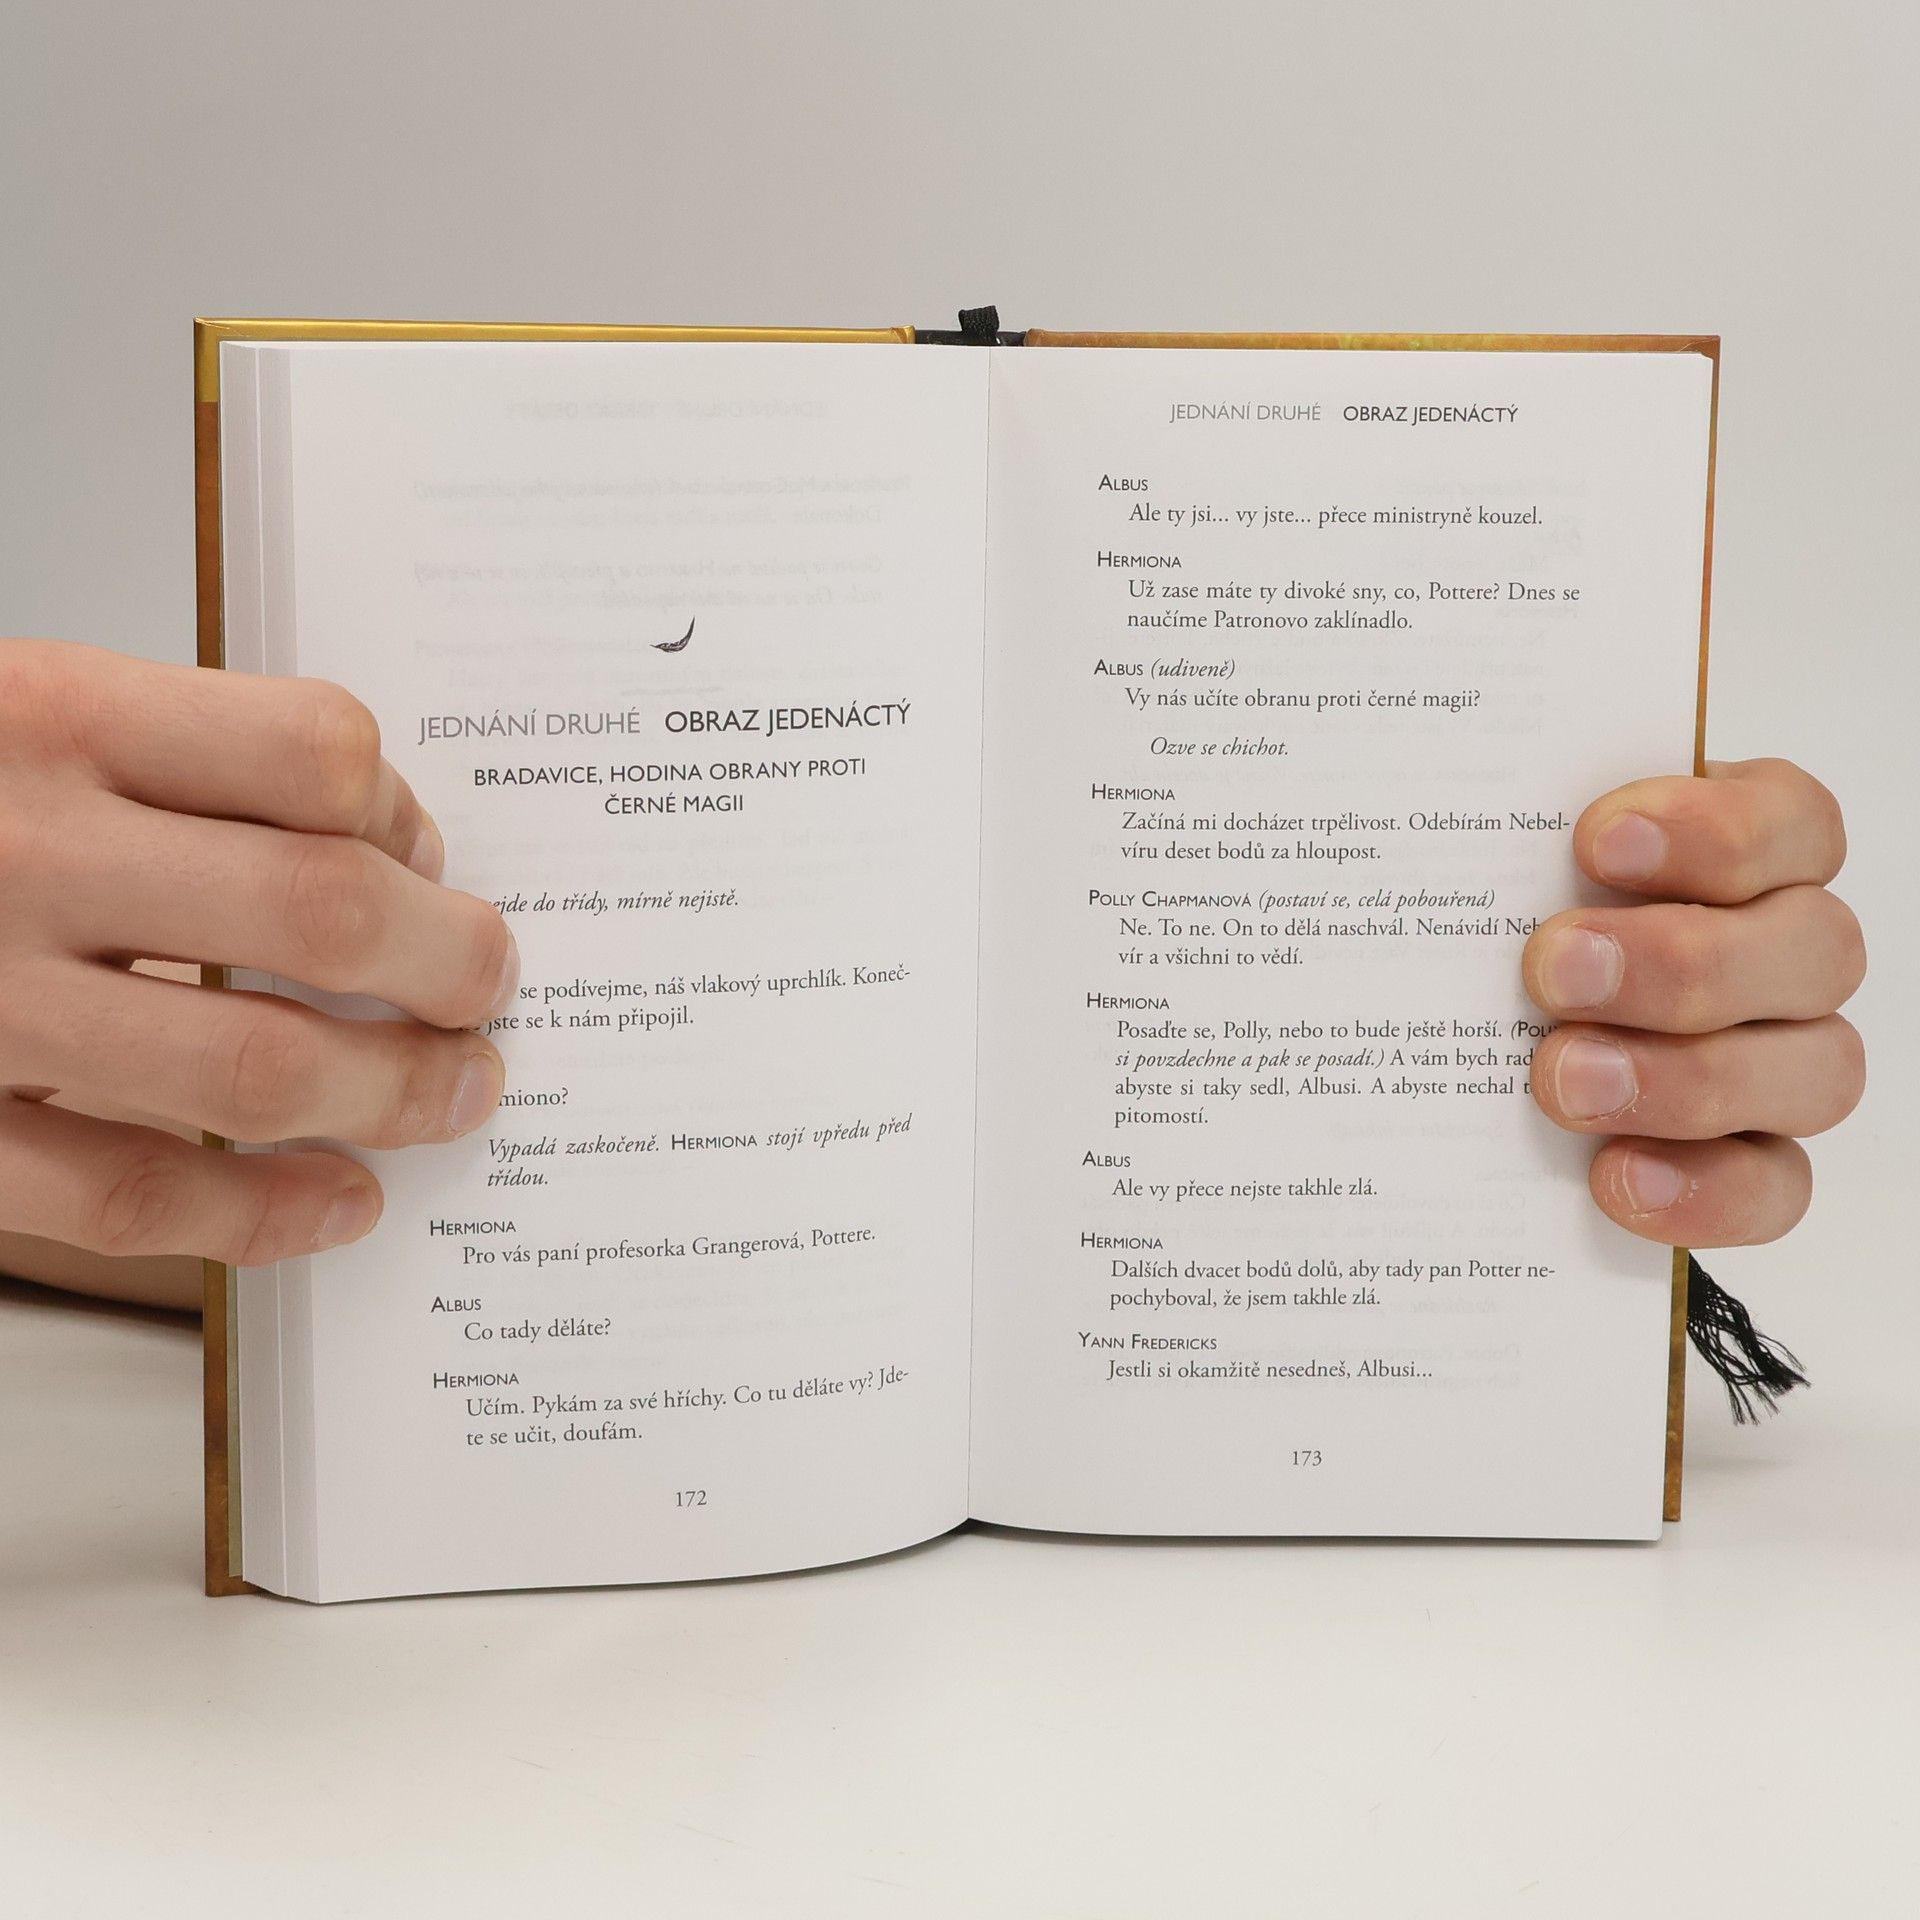 JEDNÁNÍ DRUHÉ OBRAZ JEDENÁCTÝ
BRADAVICE, HODINA OBRANY PROTI
ČERNÉ MAGII
do třídy, mírně nejistě.
se podívejme, náš vlakový uprchlík. Koneč-
jste se k nám připojil.
Vypadá zaskočeně. HERMIONA stojí vpředu před
třídou.
HERMIONA
Pro vás paní profesorka Grangerová, Pottere.
ALBUS
Co tady děláte?
HERMIONA
Učím. Pykám za své hříchy. Co tu děláte vy? Jde-
te se učit, doufám.
172
JEDNÁNÍ DRUHÉ OBRAZ JEDENÁCTÝ
ALBUS
Ale ty jsi... vy jste... přece ministryně kouzel.
HERMIONA
Už zase máte ty divoké sny, co, Pottere? Dnes se
naučíme Patronovo zaklínadlo.
ALBUS (udiveně)
Vy nás učíte obranu proti černé magii?
Ozve se chichot.
HERMIONA
Začíná mi docházet trpělivost. Odebírám Nebel-
víru deset bodů za hloupost.
POLLY CHAPMANOVÁ (postaví se, celá pobouřená)
Ne. To ne. On to dělá naschvál. Nenávidí
vír a všichni to vědí.
HERMIONA
Posaďte se, Polly, nebo to bude ještě horší.
si povzdechne a pak se posadí.) A vám bych
abyste si taky sedl, Albusi. A abyste nechal
pitomostí.
ALBUS
Ale vy přece nejste takhle zlá.
HERMIONA
Dalších dvacet bodů dolů, aby tady pan Potter ne-
pochyboval, že jsem takhle zlá.
YANN FREDERICKS
Jestli si okamžitě nesedneš, Albusi...
173